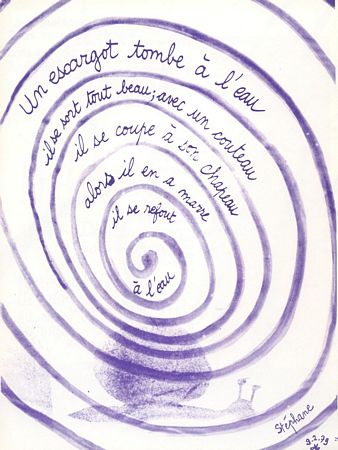 Un escargot tombe à l'eau
il se sort tout beau; avec un couteau
il se coupe à son chapeau
alors il en a marre
il se refout
à l'eau
Stéphane